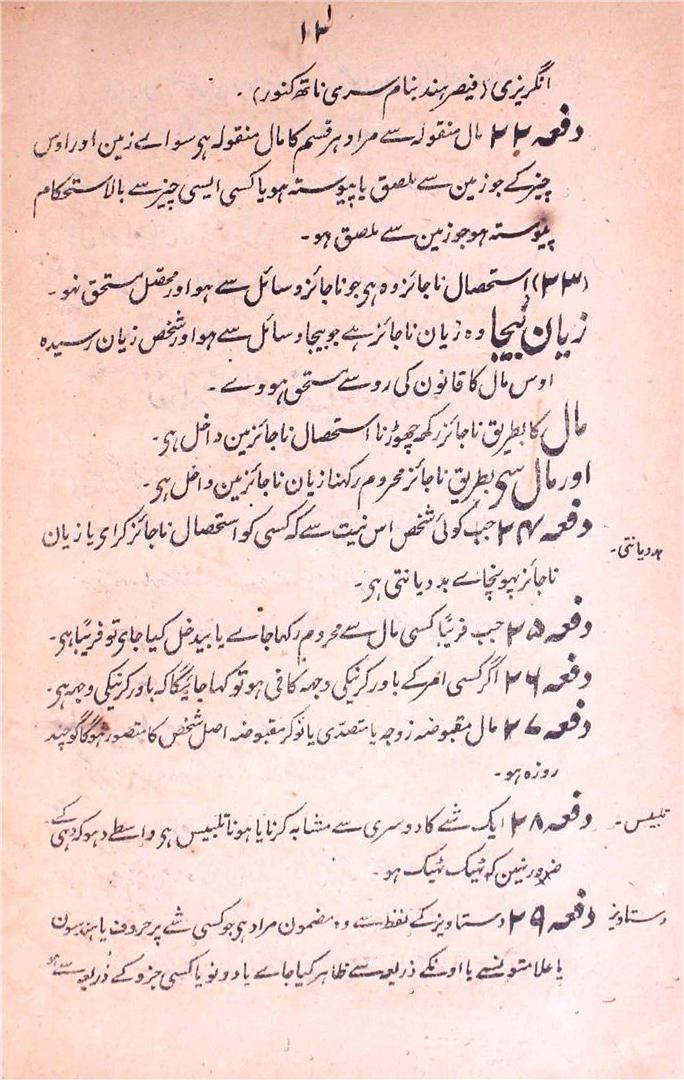 ۱۳
انگریزی (قیصر ہند بنام سری ناتھ کنور) ۔
دفعہ ۲۲ مال منقولہ سے مراد ہر قسم کا مال منقولہ ہی سواے زمین اور اوس
چیز کے جو زمین سے ملصق یا پیوستہ ہو یا کسی ایسی چیز سے بالاستحکام
پیوستہ ہو جو زمین سے ملصق ہو ۔
(۲۳) استحصال ناجائز وہ ہی جو ناجائز وسائل سے ہو اور محصل مستحق نہو ۔
زیان بیجا وہ زیان ناجائز ہے جو بیجا وسائل سے ہو اور شخص زیان رسیدہ
اوس مال کا قانون کی رو سے مستحق ہووے ۔
مال کا بطریق ناجائز رکھ چھوڑنا استحصال ناجائز مین داخل ہی ۔
اور مال سی بطریق ناجائز محروم رکھنا زیان ناجائز مین داخل ہی ۔
دفعہ ۲۴ جب کوئی شخص اس نیت سے کہ کسی کو استحصال ناجائز کرای یا زیان
بددیانتی ۔
ناجائز پہونچاے بددیانتی ہی ۔
دفعہ ۲۵ جب فریبًا کسی مال سے محروم رکھا جاے یا بیدخل کیا جای تو فریبًا ہی ۔
دفعہ ۲۶ اگر کسی امر کے باور کرنیکی وجہہ کافی ہو تو کہا جائیگا کہ باور کرنیکی وجہہ ہی ۔
دفعہ ۲۷ مال مقبوضہ زوجہ یا متصدّی یا نوکر مقبوضہ اصل شخص کا متصور ہوگا گو چند
روزہ ہو ۔
تلبیس ۔
دفعہ ۲۸ ایک شے کا دوسری سے مشابہ کرنا یا ہونا تلبیس ہی واسطے دہوکہ دہی کے
ضرور نہین کہ ٹہیک ٹہیک ہو ۔
دستاویز
دفعہ ۲۹ دستاویز کے لفظ سے وہ مضمون مراد ہی جو کسی شے پر حروف یا ہندسون
یا علامتونسے یا اونکے ذریعہ سے ظاہر کیا جاے یا دونو یا کسی جزو کے ذریعہ سے ہو